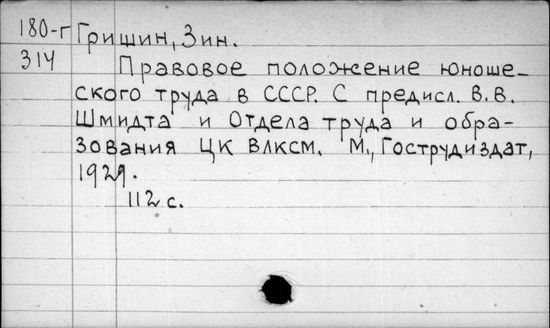 180-г Гришин, Зин.
314 Правовое положение юноше-
ского труда в СССР. С предисл. В.В.
Шмидта и Отдела труда и обра-
зования ЦК ВЛКСМ. М., Гострудиздат,
1929.
112 с.